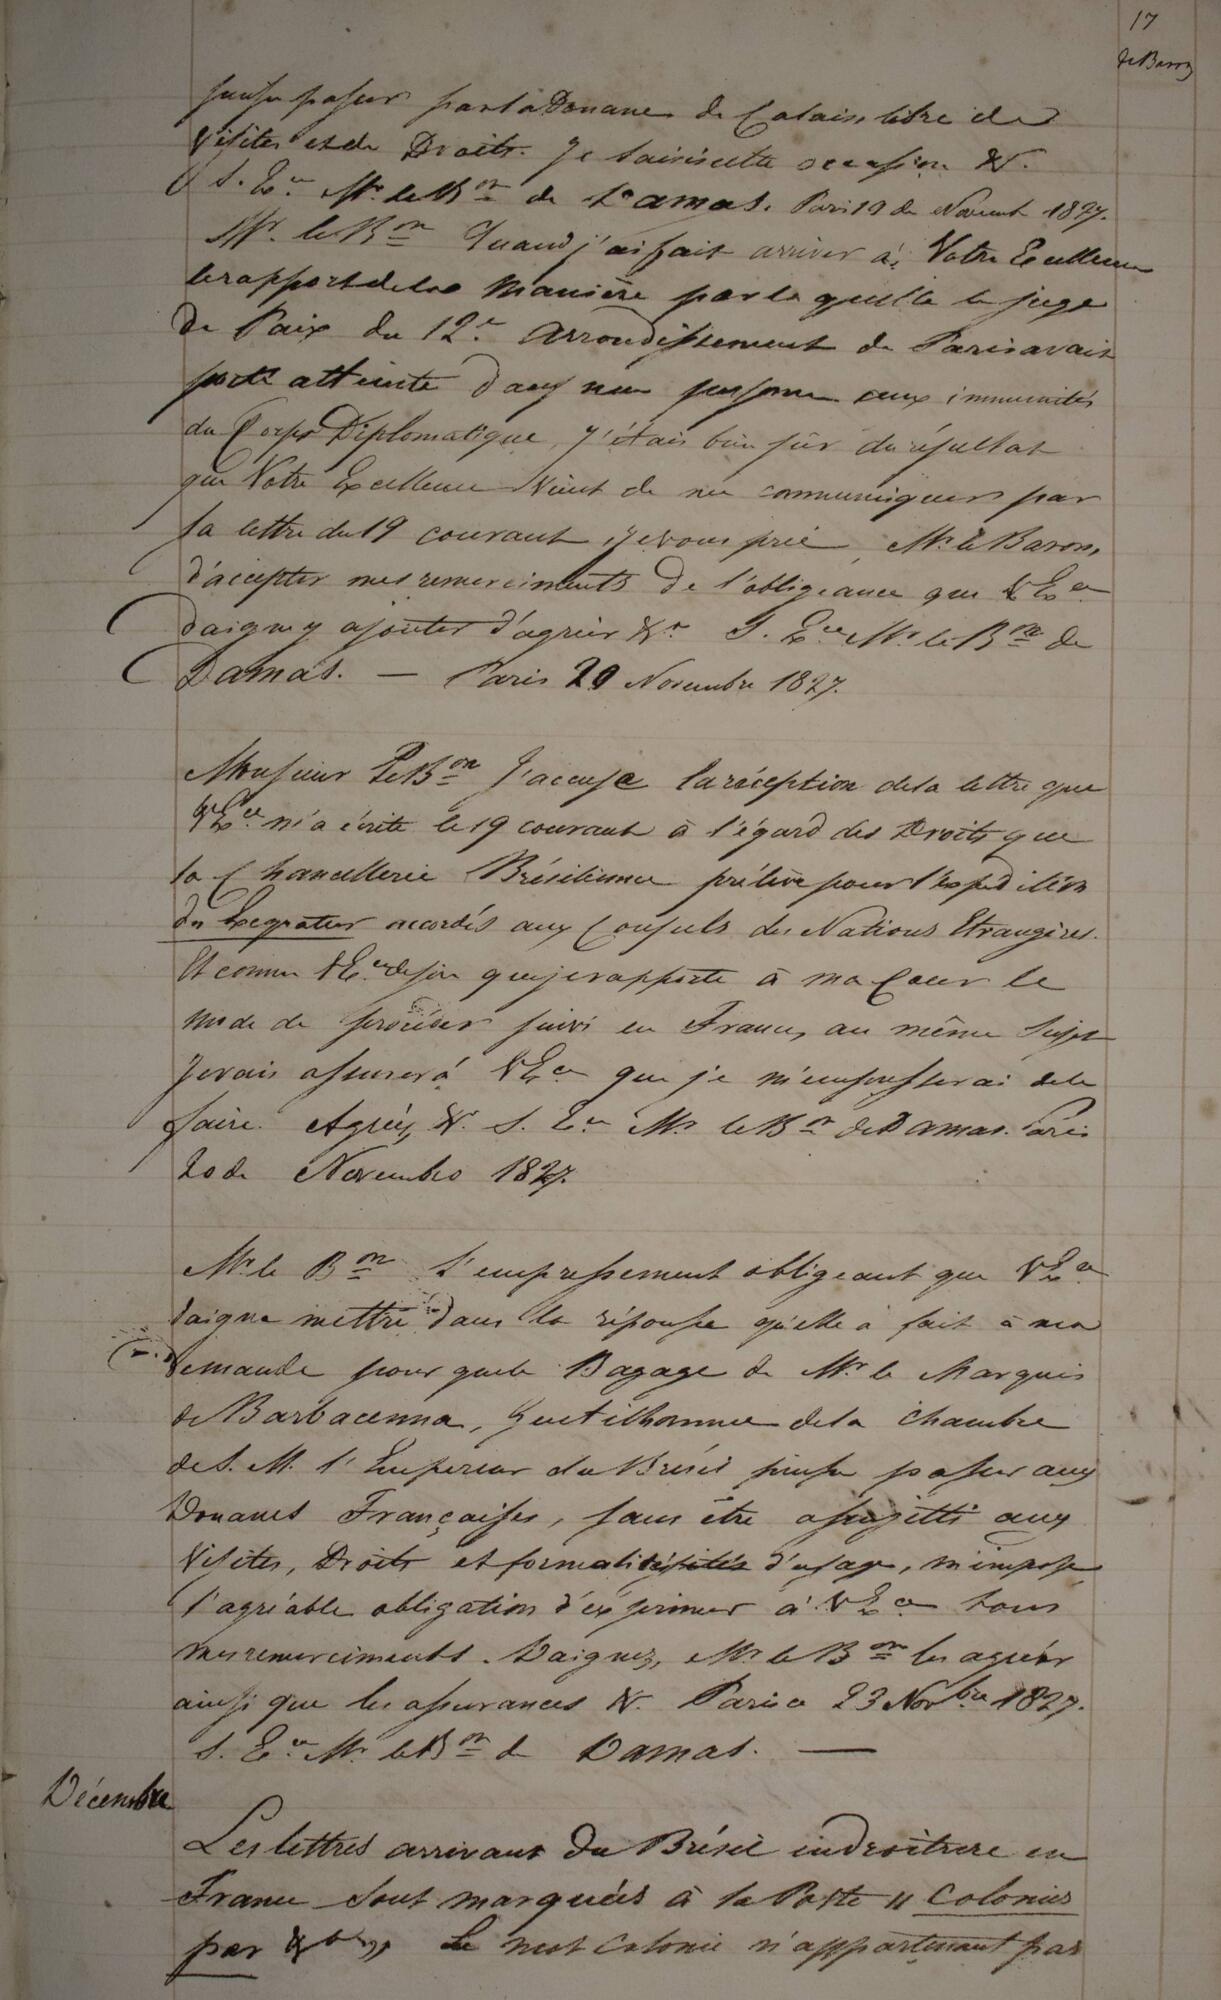 17
de Barros
puisse passer par la Douane de Calais libre de
Visites et de Droits. Je saisis cette occasion &.
S. Ex.ce Mr. le B.on de Damas. Paris 19 de Novemb 1827.
Mr. le B.on Quand j'ai fait arriver à Votre Excellence
le rapport de la Manière par laquelle le juge
de Paix du 12.e Arrondissement de Paris avait
porté atteinte dans ma personne aux immunités
du Corps Diplomatique, j'étais bien sûr du résultat
que Votre Excellence Vient de me communiquer par
sa lettre du 19 courant, je vous prie, Mr. le Baron,
d'accepter mes remerciments de l'obligeance que V Ex.ce
daigne y ajouter d'agréer &a S. Ex.ce Mr. le B.on de
Damas. — Paris 20 Novembre 1827.
Monsieur Le B.on J'accuse la réception de la lettre que
V Ex.ce m'a écrite le 19 courant à l'égard des Droits que
la Chancellerie Brésilienne prélève pour l'expédition
du Exequatur accordés aux Consuls des Nations Etrangères.
Et comme V Ex.ce desire que je rapporte à ma Cour le
mode de procéder suivi en France, au même Sujet
Je vais assurer à V Ex.ce que je m'empresserai de le
faire. Agréez, &. S. Ex.ce Mr. le B.on de Damas. Paris
20 de Novembro 1827.
Mr. le B.on L'empressement obligeant que V Ex.ce
daigna mettre dans la réponse qu'elle a fait à ma
demande pour que le Bagage de Mr. le Marquis
de Barbacenna, Gentilhomme de la Chambre
de S. M. l'Empereur du Brésil puisse passer aux
Douanes Françaises, sans être assujetti aux
Visites, Droits et formalités d'usage, m'impose
l'agréable obligation d'exprimer à V Ex.ce tous
mes remerciments. Daignez, Mr. le B.on les agréer
ainsi que les assurances &. Paris 23 Nov.bre 1827.
S. Ex.ce Mr. le B.on de Damas. —
Décembre
Les lettres arrivant du Brésil en
France sont marquées à la Poste " Colonies
par Le mot Colonie n'appartenant pas